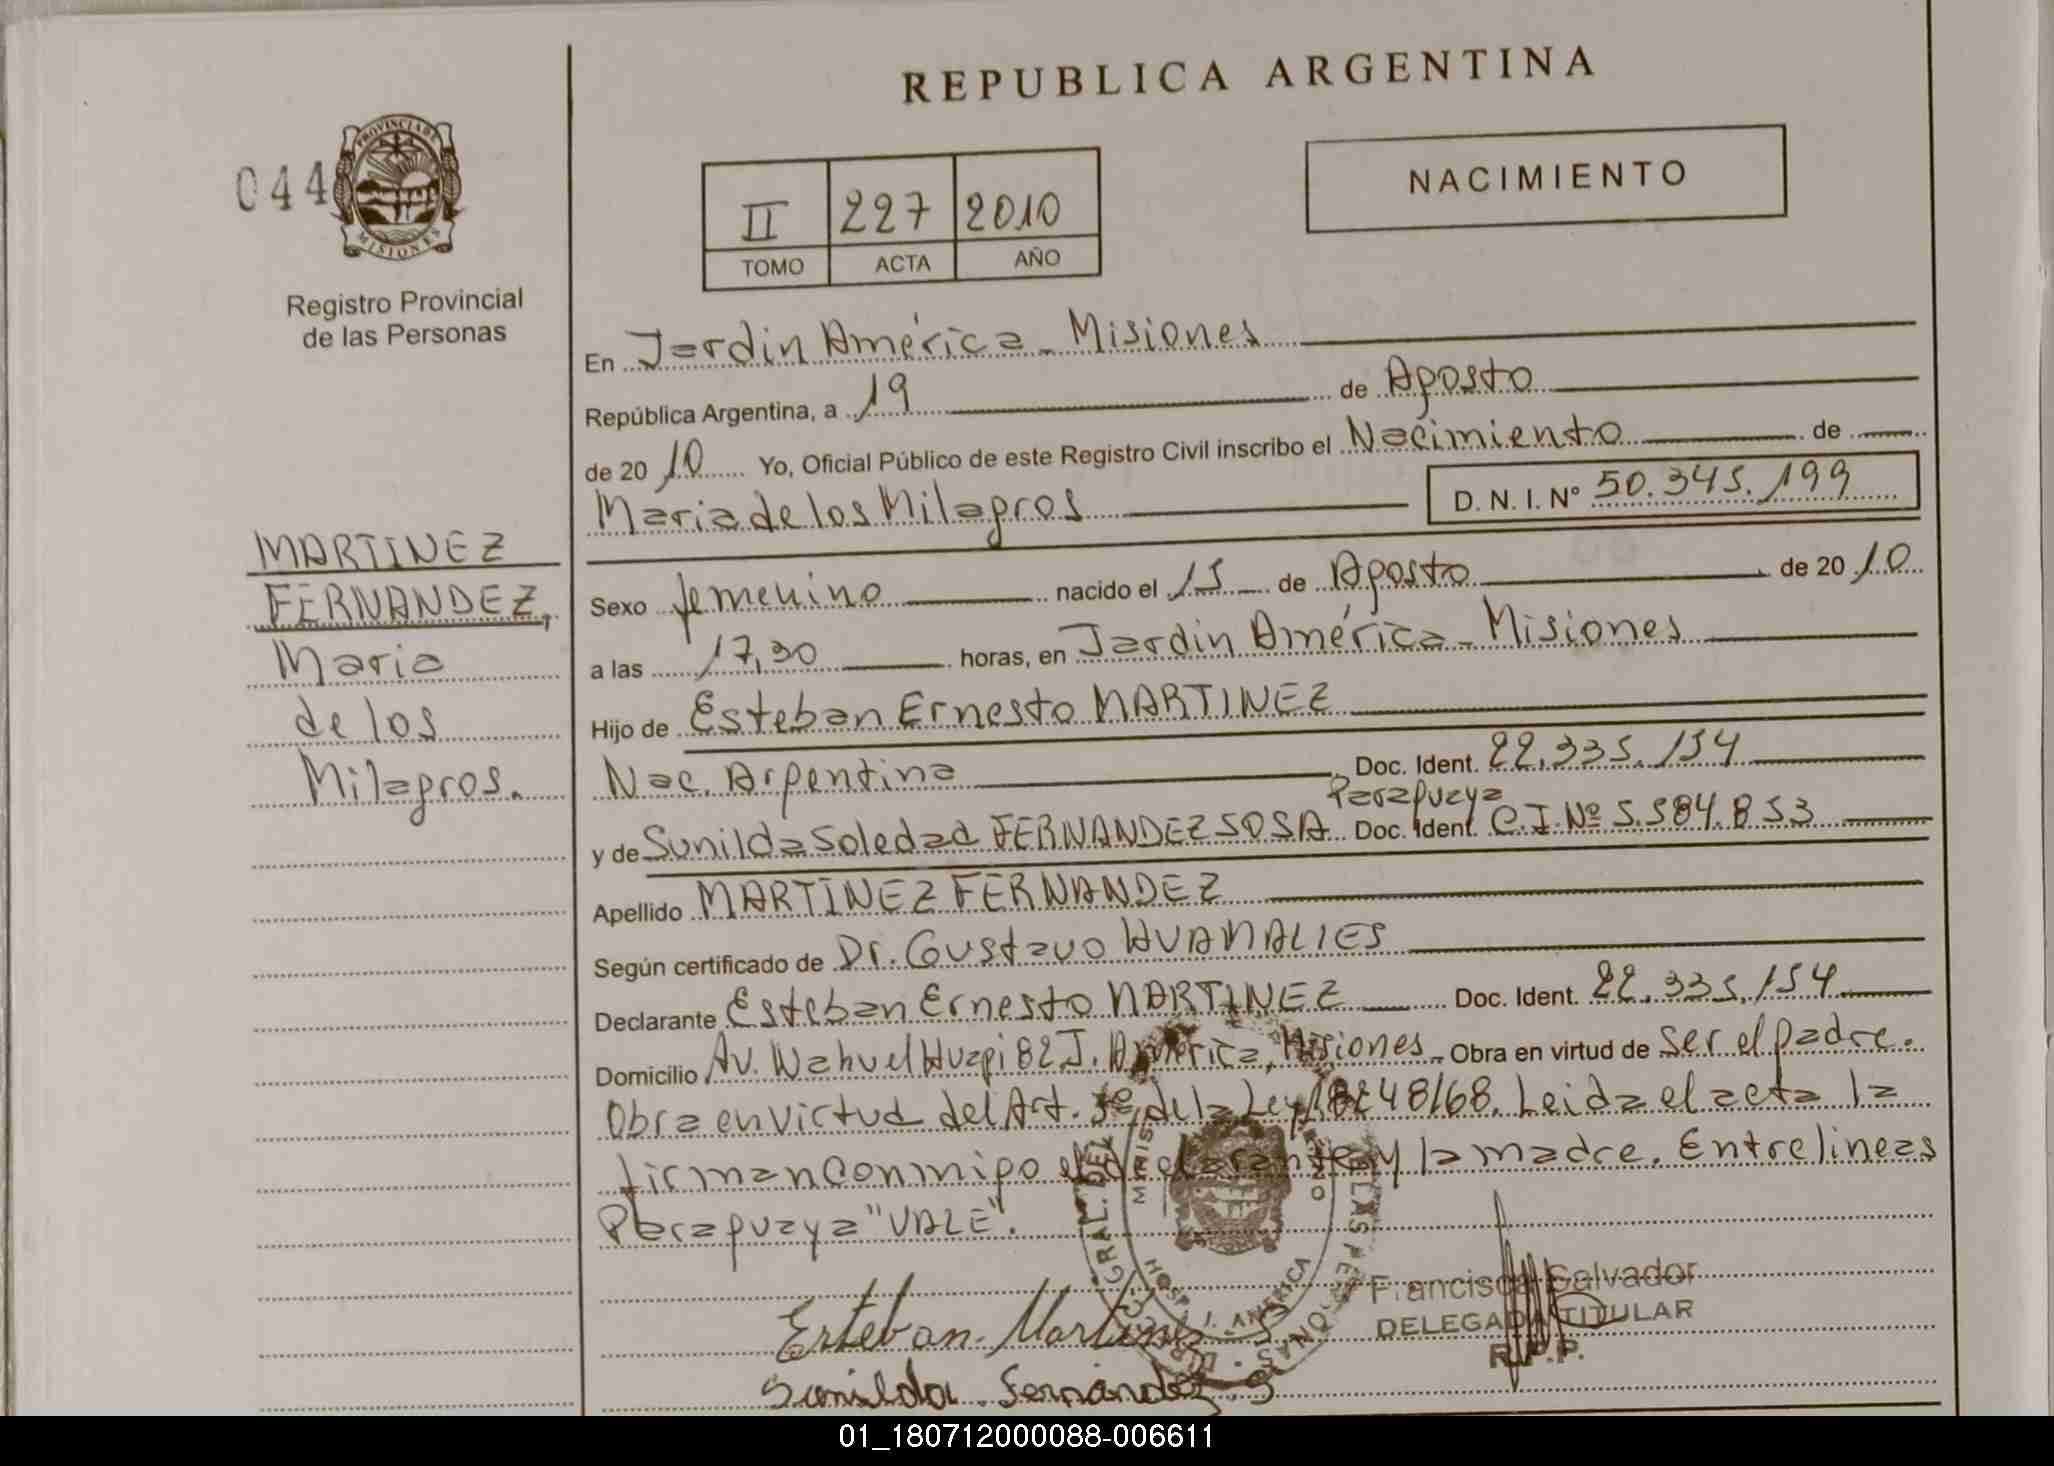 REPUBLICA ARGENTINA
044
PROVINCIA DE
MISIONES
Registro Provincial
de las Personas
II 227 2010
TOMO ACTA AÑO
NACIMIENTO
En Jardin América - Misiones
República Argentina, a 19 de Agosto
de 20 10 Yo, Oficial Público de este Registro Civil inscribo el Nacimiento de
Maria de los Milagros D. N. I. N° 50.345.199
MARTINEZ
FERNANDEZ,
Maria
de los
Milagros.
Sexo femenino nacido el 15 de Agosto de 20 10
a las 17,30 horas, en Jardin América - Misiones
Hijo de Esteban Ernesto MARTINEZ
Nac. Argentina Doc. Ident. 22.335.154
Paraguaya
y de Sunilda Soledad FERNANDEZ SOSA Doc. Ident. C.I. Nº 5.584.853
Apellido MARTINEZ FERNANDEZ
Según certificado de Dr. Gustavo HUAMALIES
Declarante Esteban Ernesto MARTINEZ Doc. Ident. 22.335.154
Domicilio Av. Nahuel Huapi 82 J. América, Misiones - Obra en virtud de ser el padre.
Obra en virtud del Art. de la Ley 18248/68. Leida el acta la
firman conmigo el declarante y la madre. Entrelineas
Paraguaya "VALE".
Esteban Martinez
Sunilda Fernández S
GRAL. DEL
J. AMERICA
Francisco Salvador
DELEGADO TITULAR
R.P.P.
01_180712000088-006611